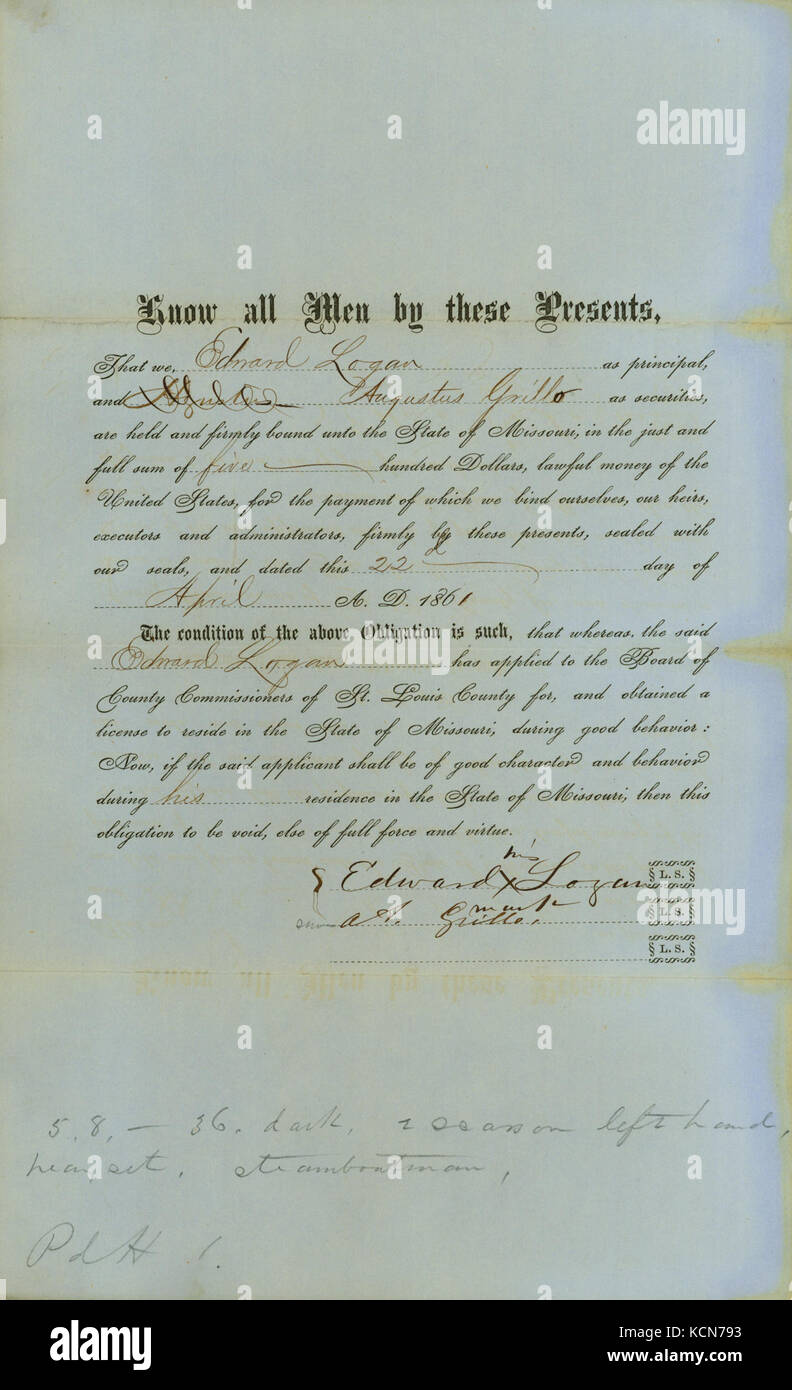 Know all Men by these Presents,
That we, Edward Logan as principal,
and Augustus Grillo as securities,
are held and firmly bound unto the State of Missouri, in the just and
full sum of five hundred Dollars, lawful money of the
United States, for the payment of which we bind ourselves, our heirs,
executors and administrators, firmly by these presents, sealed with
our seals, and dated this 22 day of
April A. D. 1861
The condition of the above Obligation is such, that whereas, the said
Edward Logan has applied to the Board of
County Commissioners of St. Louis County for, and obtained a
license to reside in the State of Missouri, during good behavior:
Now, if the said applicant shall be of good character and behavior
during his residence in the State of Missouri, then this
obligation to be void, else of full force and virtue.
his
Edward X Logan L. S.
mark
Grillo. L. S.
L. S.
5.8, — 36. dark, 2 scars on left hand,
steamboatman,
Pd H 1.
alamy
Image ID: KCN793
www.alamy.com